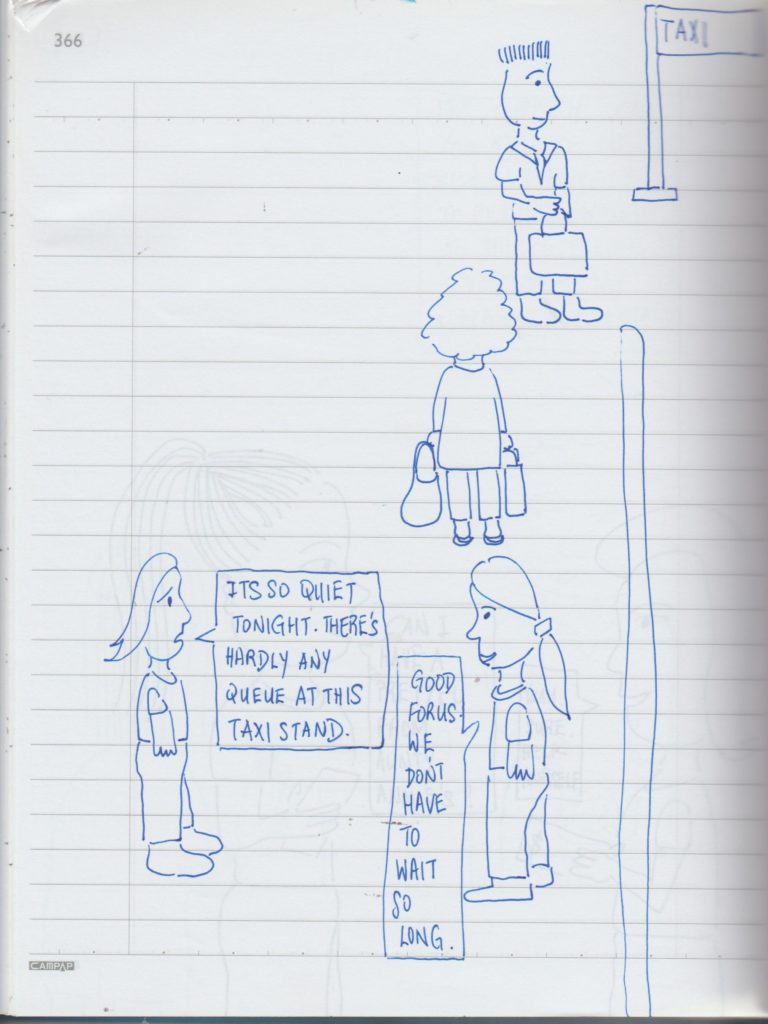 366
TAXI
ITS SO QUIET
TONIGHT. THERE'S
HARDLY ANY
QUEUE AT THIS
TAXI STAND.
GOOD
FOR US.
WE
DON'T
HAVE
TO
WAIT
SO
LONG.
CAMPAP